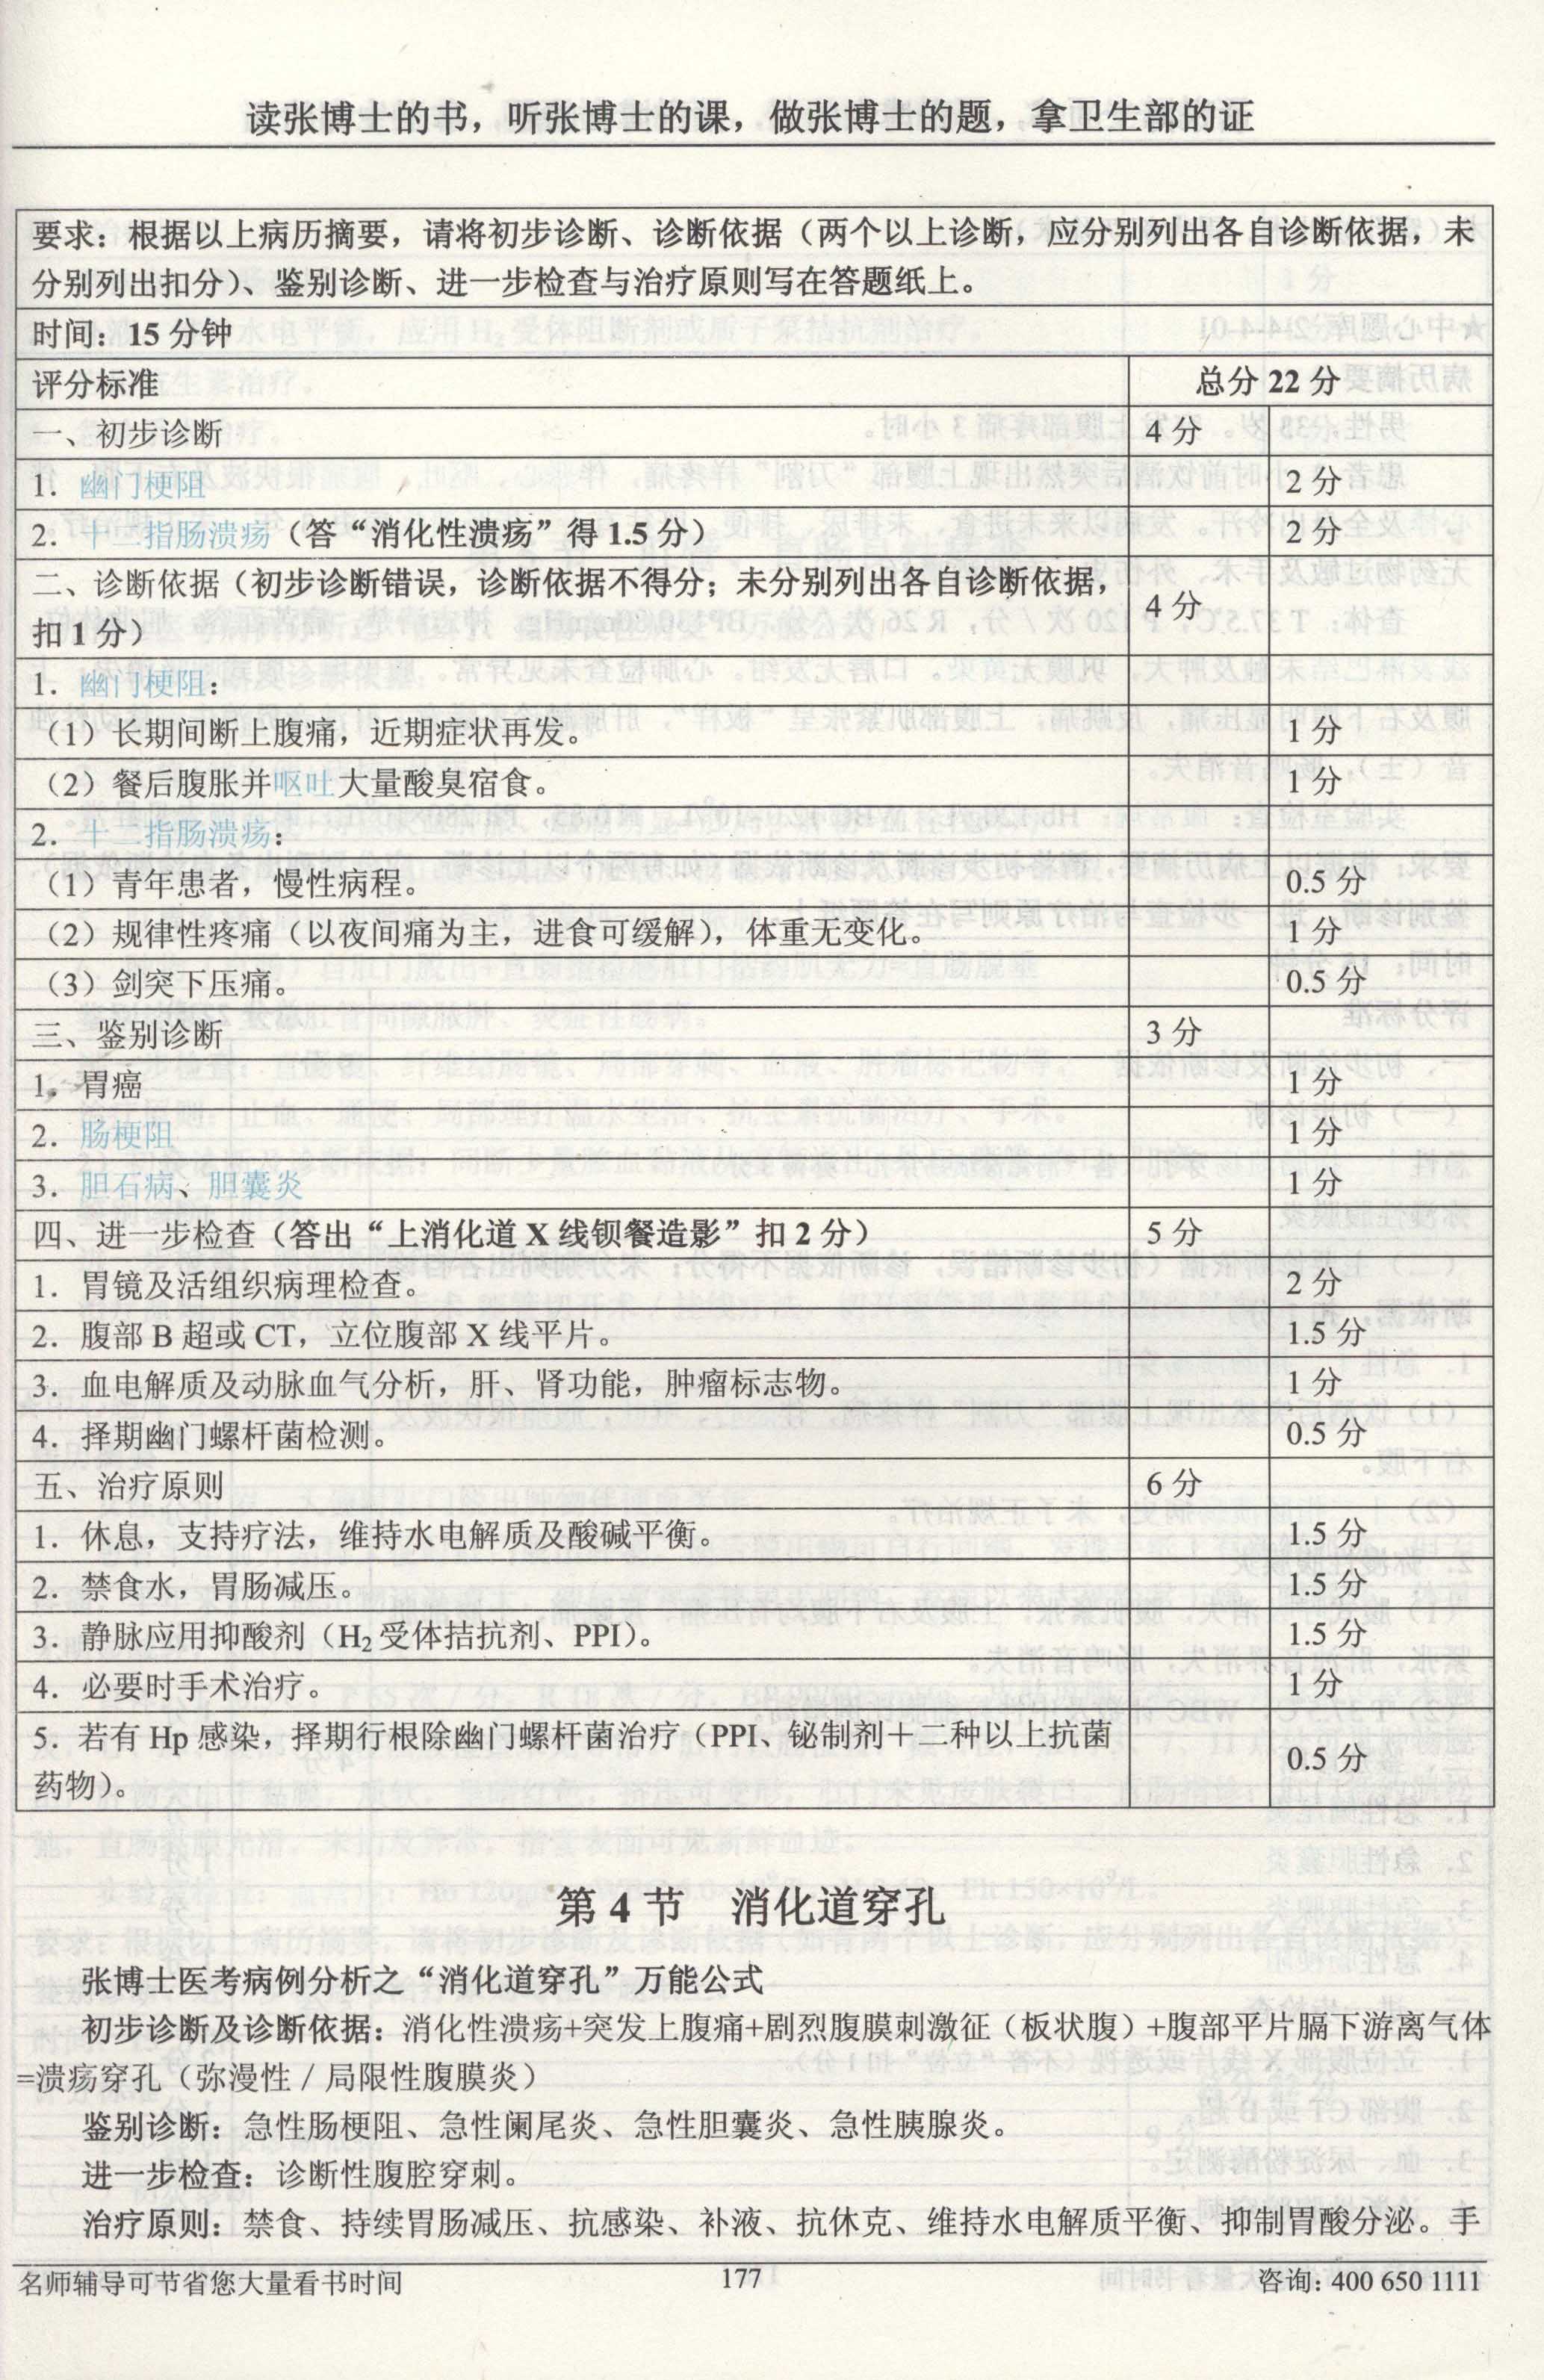 读张博士的书，听张博士的课，做张博士的题，拿卫生部的证
要求：根据以上病历摘要，请将初步诊断、诊断依据（两个以上诊断，应分别列出各自诊断依据，未
分别列出扣分）、鉴别诊断、进一步检查与治疗原则写在答题纸上。
时间：15 分钟
评分标准 总分 22 分
一、初步诊断 4 分
1．幽门梗阻 2 分
2．十二指肠溃疡（答“消化性溃疡”得 1.5 分） 2 分
二、诊断依据（初步诊断错误，诊断依据不得分；未分别列出各自诊断依据，
扣 1 分） 4 分
1．幽门梗阻：
（1）长期间断上腹痛，近期症状再发。 1 分
（2）餐后腹胀并呕吐大量酸臭宿食。 1 分
2．十二指肠溃疡：
（1）青年患者，慢性病程。 0.5 分
（2）规律性疼痛（以夜间痛为主，进食可缓解），体重无变化。 1 分
（3）剑突下压痛。 0.5 分
三、鉴别诊断 3 分
1．胃癌 1 分
2．肠梗阻 1 分
3．胆石病、胆囊炎 1 分
四、进一步检查（答出“上消化道 X 线钡餐造影”扣 2 分） 5 分
1．胃镜及活组织病理检查。 2 分
2．腹部 B 超或 CT，立位腹部 X 线平片。 1.5 分
3．血电解质及动脉血气分析，肝、肾功能，肿瘤标志物。 1 分
4．择期幽门螺杆菌检测。 0.5 分
五、治疗原则 6 分
1．休息，支持疗法，维持水电解质及酸碱平衡。 1.5 分
2．禁食水，胃肠减压。 1.5 分
3．静脉应用抑酸剂（H₂受体拮抗剂、PPI）。 1.5 分
4．必要时手术治疗。 1 分
5．若有 Hp 感染，择期行根除幽门螺杆菌治疗（PPI、铋制剂＋二种以上抗菌
药物）。 0.5 分
第 4 节　消化道穿孔
张博士医考病例分析之“消化道穿孔”万能公式
初步诊断及诊断依据：消化性溃疡+突发上腹痛+剧烈腹膜刺激征（板状腹）+腹部平片膈下游离气体
=溃疡穿孔（弥漫性 / 局限性腹膜炎）
鉴别诊断：急性肠梗阻、急性阑尾炎、急性胆囊炎、急性胰腺炎。
进一步检查：诊断性腹腔穿刺。
治疗原则：禁食、持续胃肠减压、抗感染、补液、抗休克、维持水电解质平衡、抑制胃酸分泌。手
名师辅导可节省您大量看书时间 177 咨询：400 650 1111